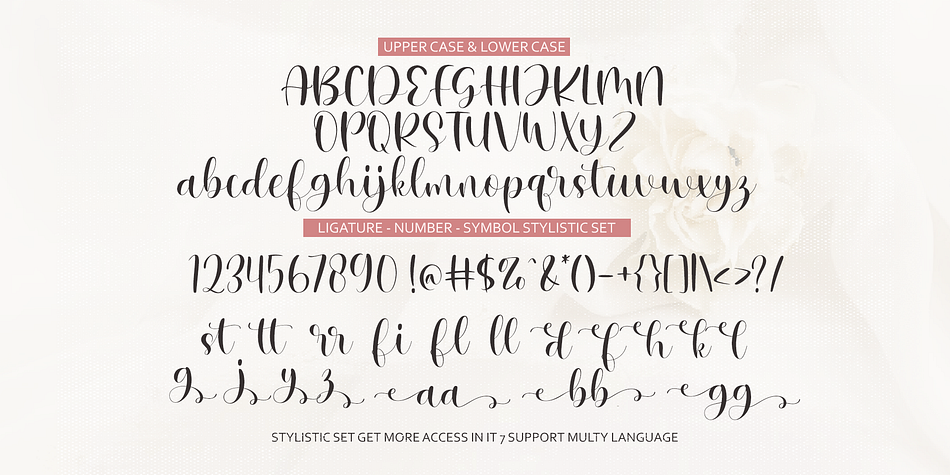 UPPER CASE & LOWER CASE
ABCDEFGHIJKLMN
OPQRSTUVWXYZ
abcdefghijklmnopqrstuvwxyz
LIGATURE - NUMBER - SYMBOL STYLISTIC SET
1234567890 !@#$%^&*()-+{}[]|\<>?/
st tt rr fi fl ll d f h k l
g j y z aa bb gg
STYLISTIC SET GET MORE ACCESS IN IT 7 SUPPORT MULTY LANGUAGE